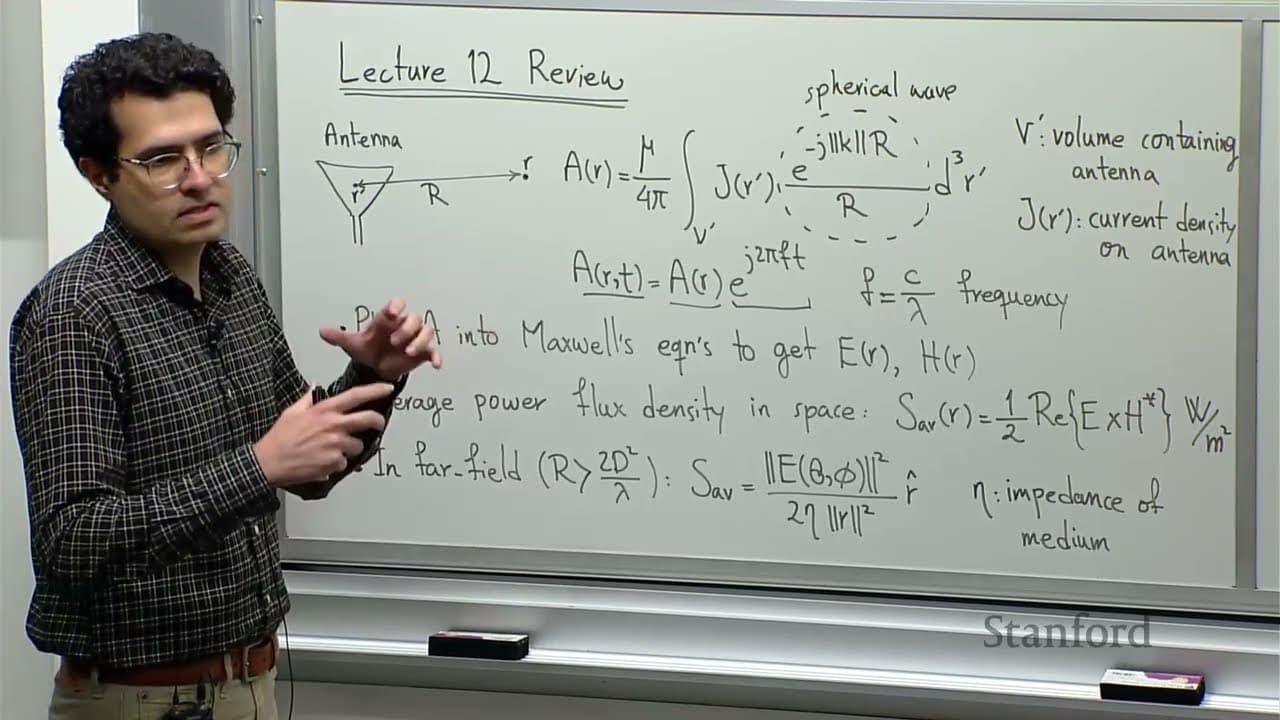 Lecture 12 Review
spherical wave
Antenna
r' R r
A(r) = μ/4π ∫_V' J(r') e^(-j||k||R)/R d³r'
V': volume containing
antenna
J(r'): current density
on antenna
A(r,t) = A(r) e^(j2πft)
f = c/λ frequency
• A into Maxwell's eqn's to get E(r), H(r)
power flux density in space: S_av(r) = 1/2 Re{E x H*} W/m²
• In far-field (R > 2D²/λ): S_av = ||E(θ,φ)||² / 2η ||r||² r̂
η: impedance of
medium
Stanford